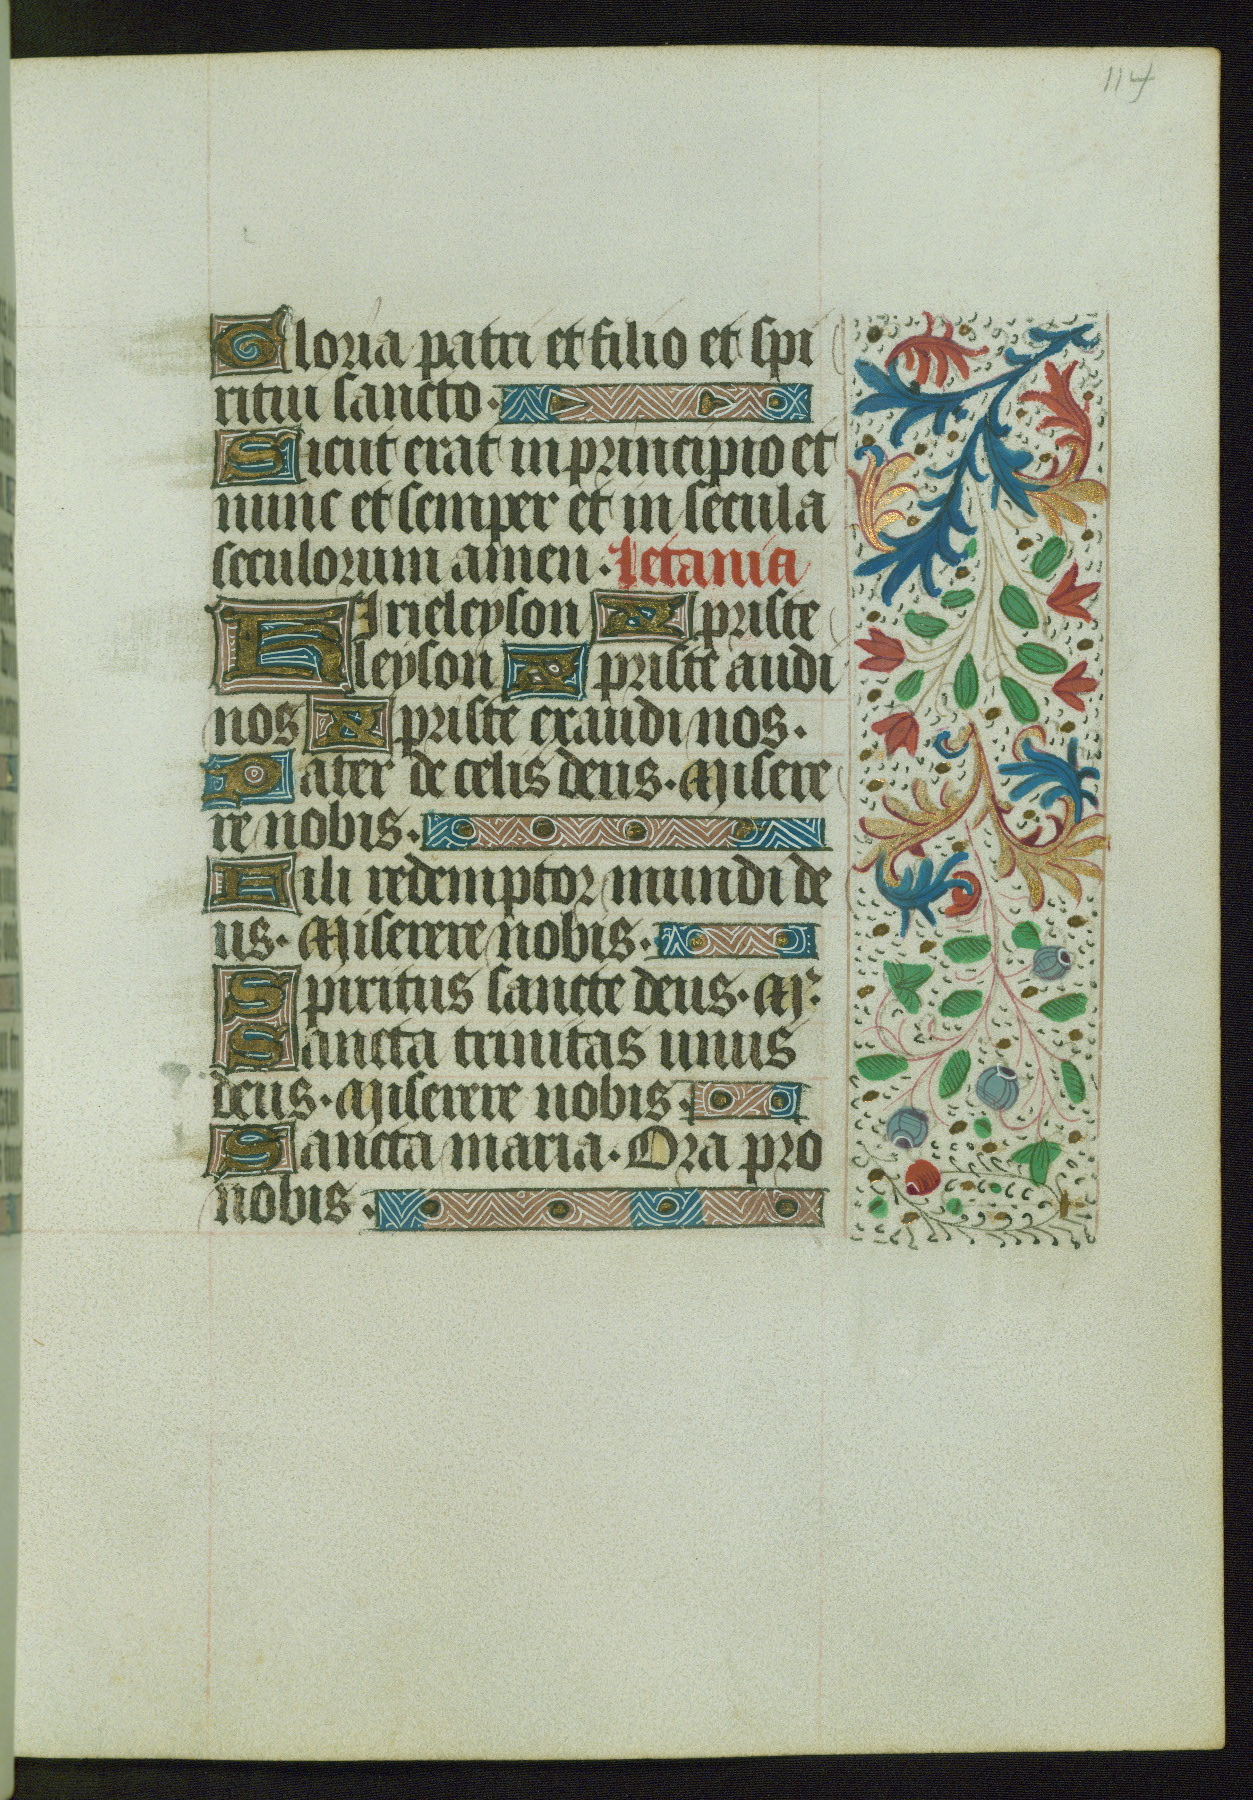 114
Gloria patri et filio et spi
ritui sancto.
Sicut erat in principio et
nunc et semper et in secula
seculorum amen. Letania
Kirieleyson Xpriste
eleyson Xpriste audi
nos Xpriste exaudi nos.
Pater de celis deus. Misere
re nobis.
Fili redemptor mundi de
us. Miserere nobis.
Spiritus sancte deus. M.
Sancta trinitas unus
deus. Miserere nobis.
Sancta maria. Ora pro
nobis.